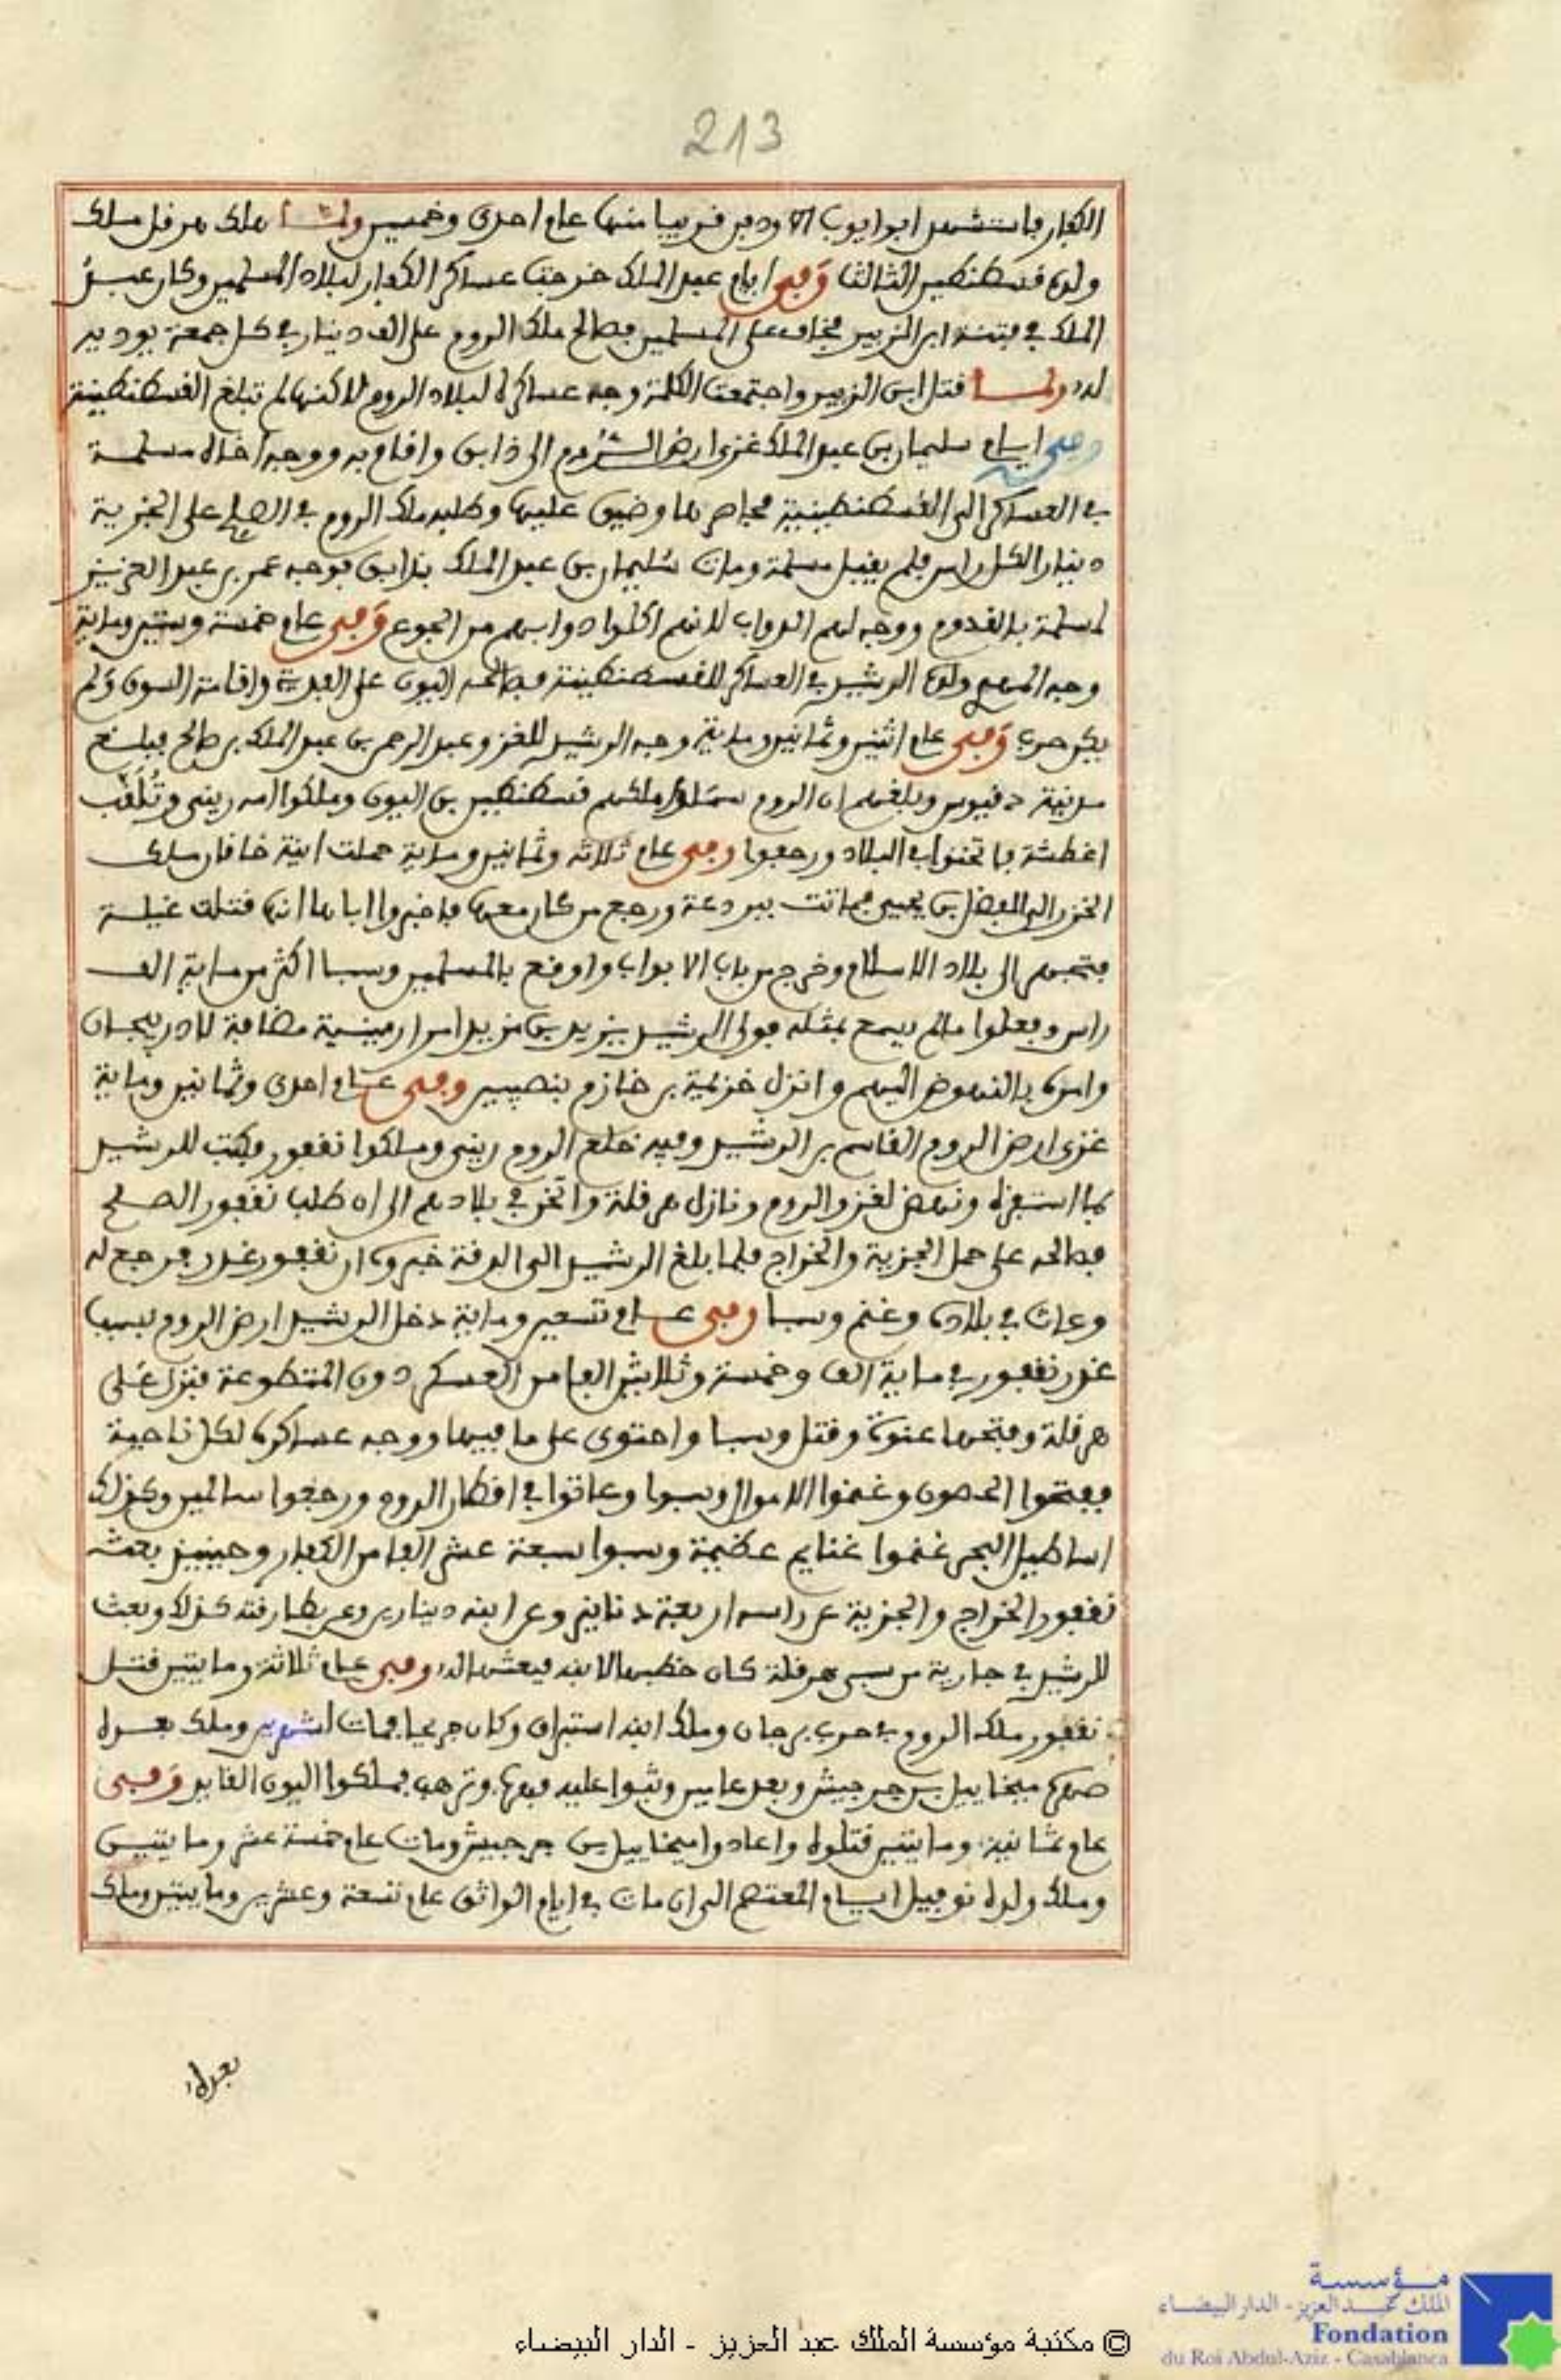 213
الكفار فاستشهد ابو ايوب الاودي قريبا منها عام احدى وخمسين ولما هلك هرقل ملك
ولده قسطنطين الثالثا وفي ايام عبد الملك خرجت عساكر الكفار لبلاد المسلمين وكان عبد
الملك في فتنة ابن الزبير فخاف على المسلمين فصالح ملك الروم على الف دينار في كل جمعة يوديه
له ولما قتل ابن الزبير واجتمعت الكلمة وجه عساكره لبلاد الروم لاكنها لم تبلغ القسطنطينية
وفي ايام سليمان بن عبد الملك غزى ارض الروم الى دابق واقام به ووجه اخاه مسلمة
في العساكر الى القسطنطينية فحاصرها وضيق عليها وطلبه ملك الروم في الصلح على الجزية
دينار لكل راس فلم يقبل مسلمة ومات سليمان بن عبد الملك بدابق فوجه عمر بن عبد العزيز
لمسلمة بالقدوم ووجه لهم الدواب لانهم اكلوا دوابهم من الجوع وفي عام خمسة وستين وماية
وجه المهدي ولده الرشيد في العساكر للقسطنطينية فصالحه اليون على الفدية واقامة السوق ولم
يكن حرب وفي عام اثنين وثمانين وماية وجه الرشيد للغزو عبد الرحمن بن عبد الملك بن صالح فبلغ
مدينة دفسوس وبلغهم ان الروم سملوا ملكهم قسطنطين بن اليون وملكوا امه ريني وتلقب
اغطشة فاثخنوا في البلاد ورجعوا وفي عام ثلاثه وثمانين وماية حملت ابنة خاقان ملك
الخزر الى الفضل بن يحيى فماتت ببردعة ورجع من كان معها فاخبروا اباها انها قتلت غيلة
فتجهز الى بلاد الاسلام وخرج من باب الابواب واوقع بالمسلمين وسبا اكثر من ماية الف
راس وفعلوا ما لم يسمع بمثله فولى الرشيد يزيد بن مزيد امر ارمينية مضافة لادريبجان
وامره بالنهوض اليهم وانزل خزيمة بن خازم بنصيبين وفي عام احدى وثمانين وماية
غزى ارض الروم القاسم بن الرشيد وفيه خلع الروم ريني وملكوا نقفور فكتب للرشيد
بما استفزه ونهض لغزو الروم ونازل هرقلة واثخن في بلادهم الى ان طلب نقفور الصلح
فصالحه على حمل الجزية والخراج فلما بلغ الرشيد الى الرقة خبروه ان نقفور غدر فرجع له
وعاث في بلاده وغنم وسبا وفي عام تسعين وماية دخل الرشيد ارض الروم بسبب
غدر نقفور في ماية الف وخمسة وثلاثين الفا من العسكر دون المتطوعة فنزل على
هرقلة وفتحها عنوة وقتل وسبا واحتوى على ما فيها ووجه عساكره لكل ناحية
ففتحوا الحصون وغنموا الاموال وسبوا وعاثوا في اقطار الروم ورجعوا سالمين وكذلك
اساطيل البحر غنموا غنايم عظيمة وسبوا سبعة عشر الفا من الكفار وحينيذ بعث
نقفور الخراج والجزية عن راسه اربعة دنانير وعن ابنه دينارين وعن بطارقته كذلك وبعث
للرشيد في جارية من سبي هرقلة كان خطبها لابنه فبعثها له وفي عام ثلاثة وما يتين قتل
نقفور ملك الروم في حرب برجان وملك ابنه استبراق وكان جريحا فمات لشهرين وملك بعده
صهره ميخاييل بن جرجيش وبعد عامين وثبوا عليه ففر وترهب فملكوا اليون القايد وفي
عام ثمانية وما يتين قتلوه واعادوا ميخاييل بن جرجيش ومات عام خمسة عشر وما يتين
وملك ولده نوفيل ايام المعتصم الى ان مات في ايام الواثق عام تسعة وعشرين وما يتين وملك
بعده
مؤسسة
الملك عبد العزيز - الدار البيضاء
Fondation
du Roi Abdul-Aziz - Casablanca
© مكتبة مؤسسة الملك عبد العزيز - الدار البيضاء